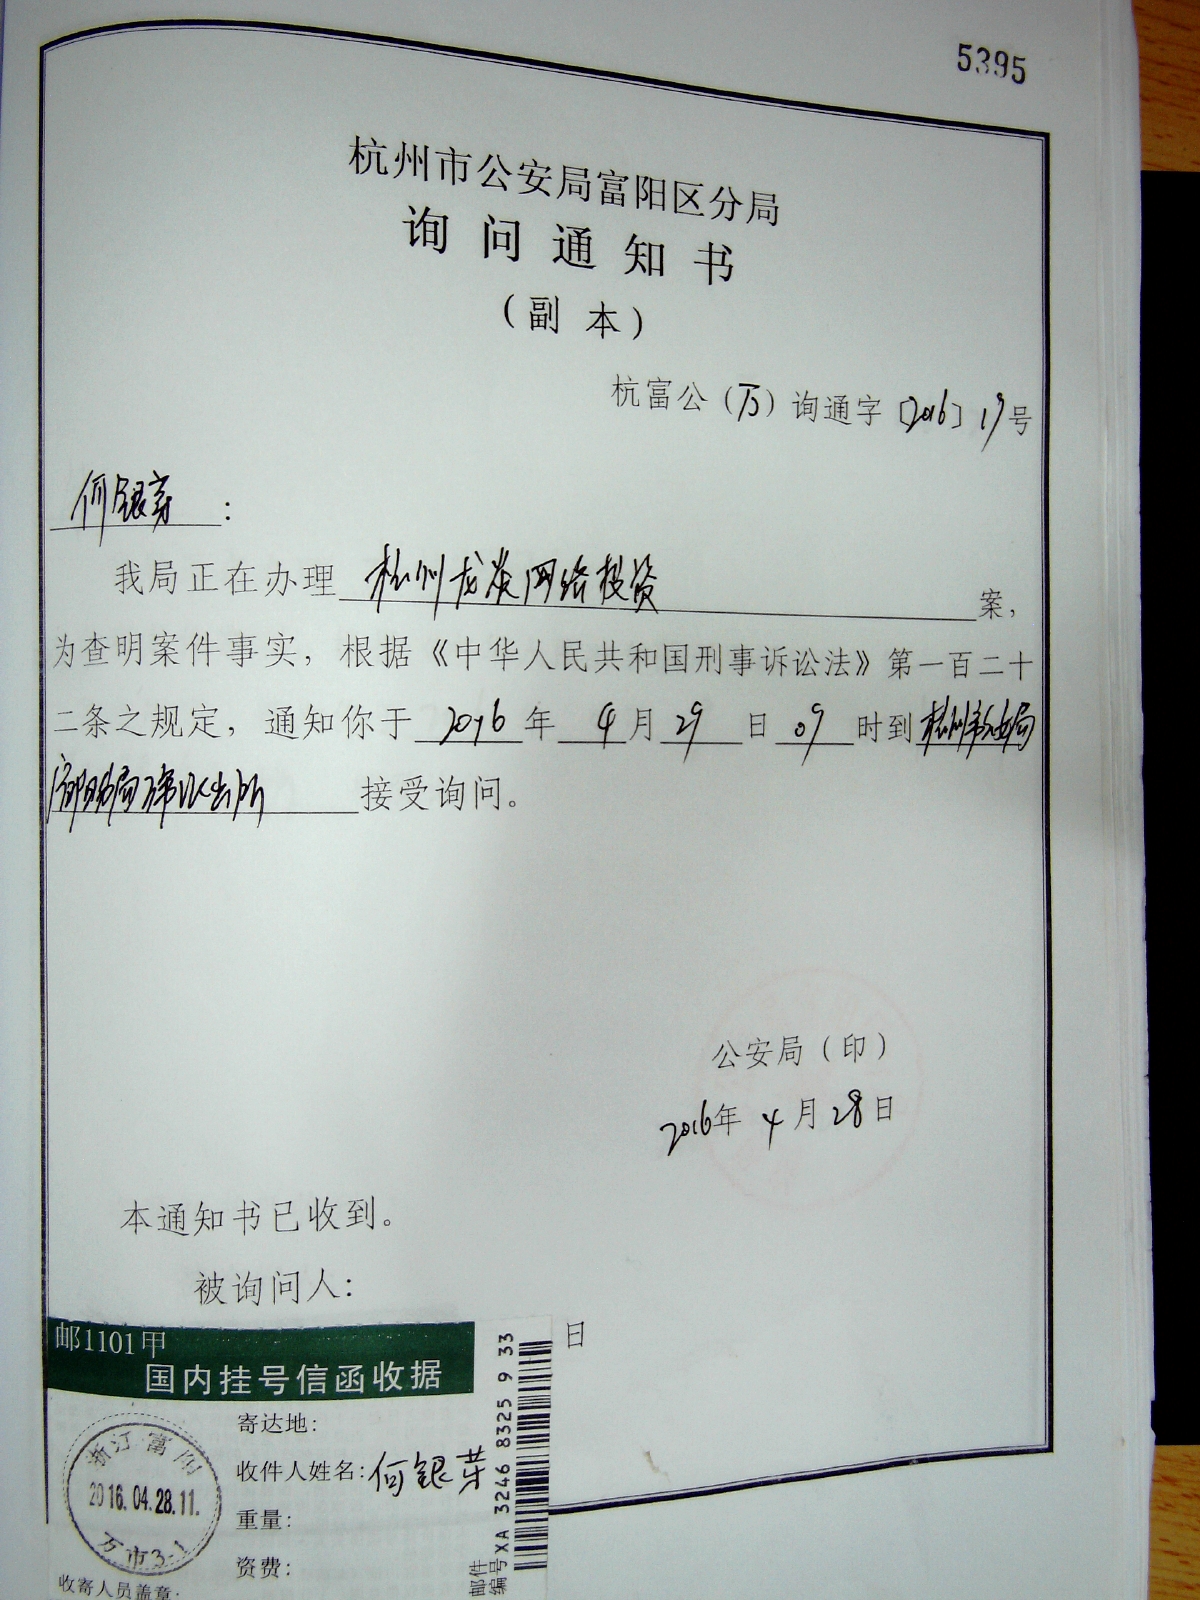 5395
杭州市公安局富阳区分局
询问通知书
(副本)
杭富公(万)询通字〔2016〕19号
何银芽:
我局正在办理杭州龙炎网络投资案,
为查明案件事实,根据《中华人民共和国刑事诉讼法》第一百二十
二条之规定,通知你于2016年4月29日09时到杭州市公安局
富阳分局派出所接受询问。
公安局(印)
2016年4月28日
本通知书已收到。
被询问人:
日
邮1101甲
国内挂号信函收据
寄达地:
收件人姓名:何银芽
重量:
资费:
收寄人员盖章:
浙江富阳
2016.04.28.11.
万市3-1
邮件
编号XA 3246 8325 9 33